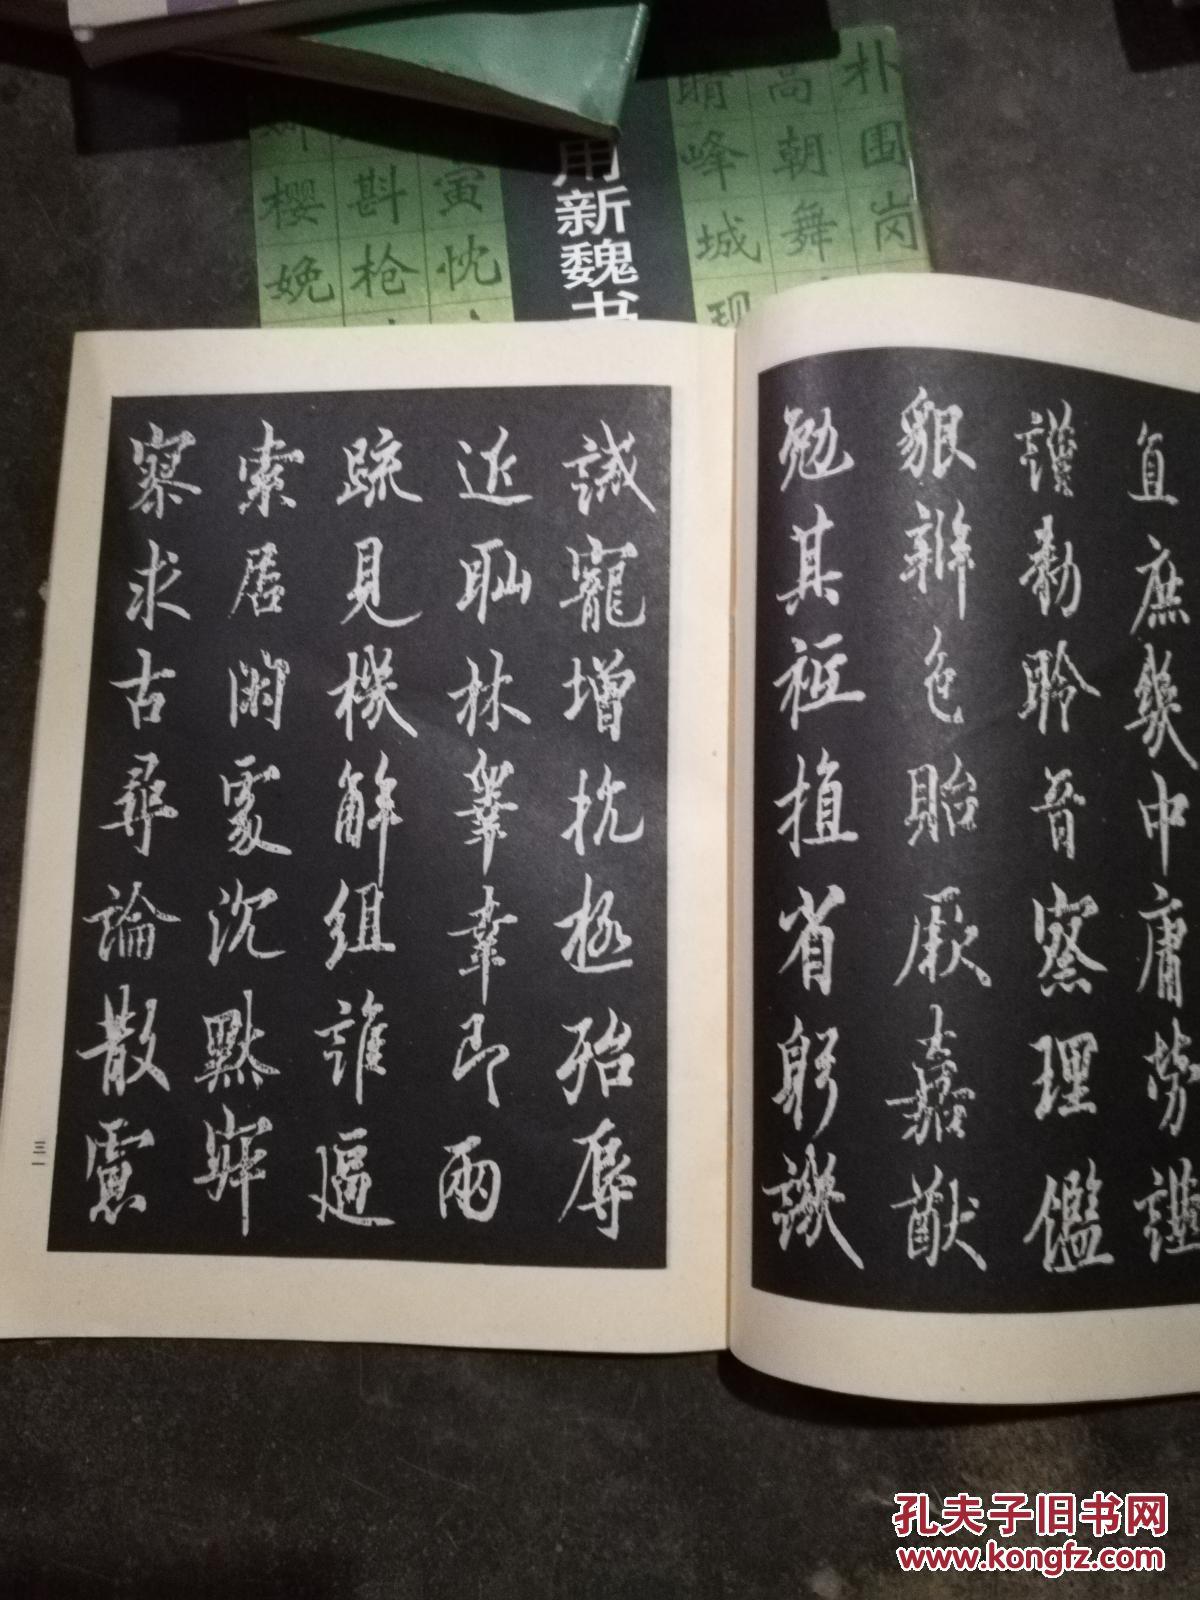 直庶幾中庸勞謙
謹勅聆音察理鑑
貌辯色貽厥嘉猷
勉其祗植省躬譏
誡寵增抗極殆辱
近恥林睾幸即兩
疏見機解組誰逼
索居閑處沉默寂
寥求古尋論散慮
三一
用新魏书
朴围岗
高朝舞
晴峰城现
寅忱
斟枪
樱娩
孔夫子旧书网
www.kongfz.com